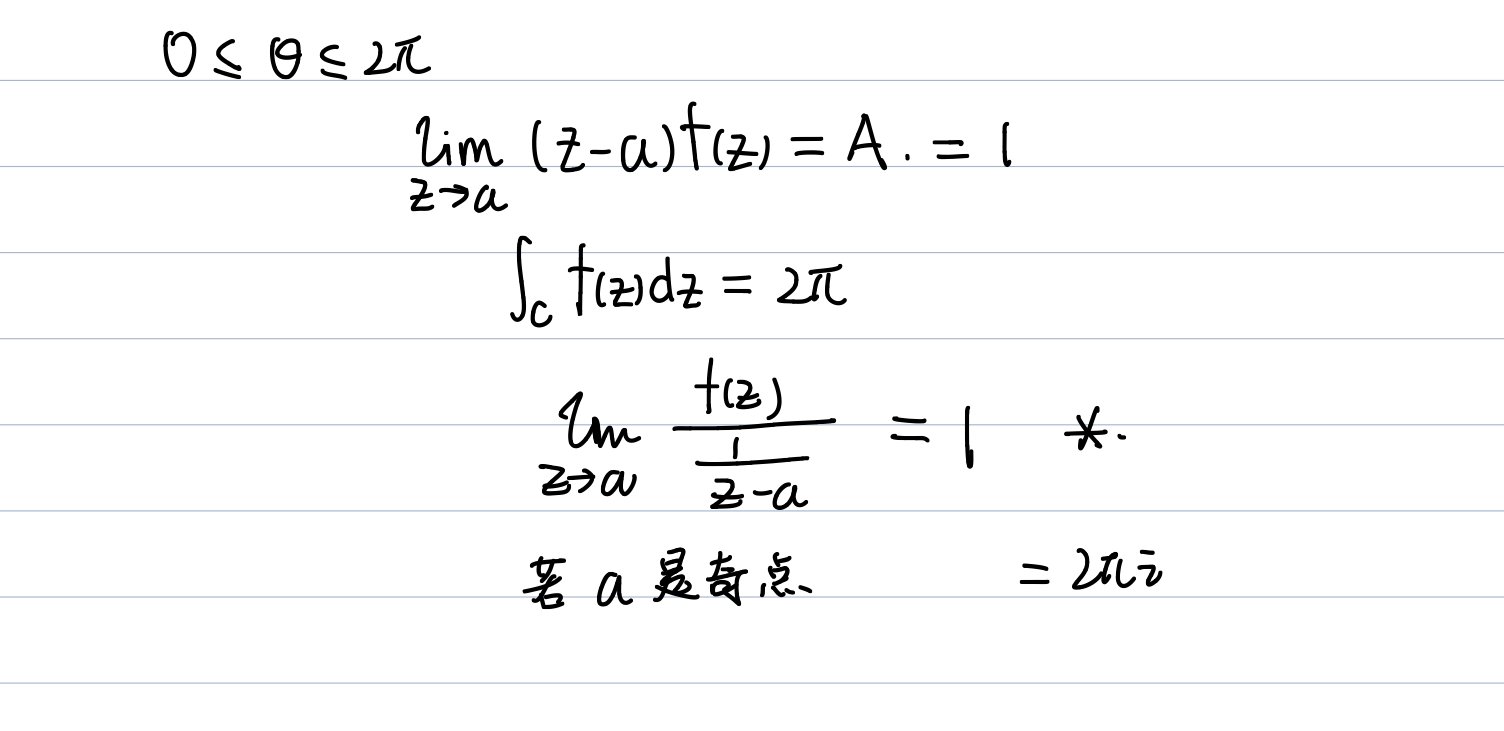 0 ≤ θ ≤ 2π
lim z→a (z-a)f(z) = A. = 1
∫_C f(z)dz = 2π
lim z→a f(z) / (1/(z-a)) = 1 *.
若 a 是奇点 = 2πi